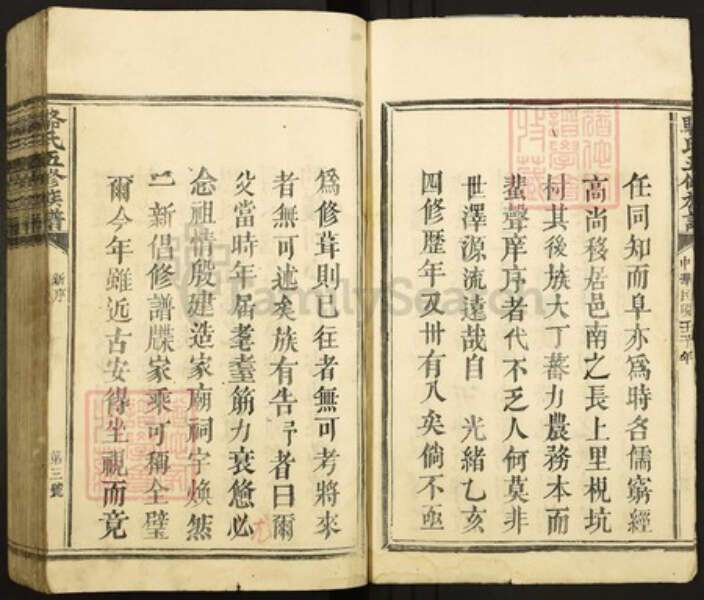 任同知而阜亦為時名儒窮經
高尚移居邑南之長上里梘坑
村其後族大丁蕃力農務本而
蜚聲庠序者代不乏人何莫非
世澤源流遠哉自 光緒乙亥
四修歷年又卅有八矣倘不亟
為修葺則已往者無可考將來
者無可述矣族有告予者曰爾
父當時年屆耄耋筋力衰憊必
念祖情殷建造家廟祠宇煥然
一新倡修譜牒家乘可稱全璧
爾今年雖近古安得坐視而竟
駱氏五修族譜
新序
第三號
FamilySearch